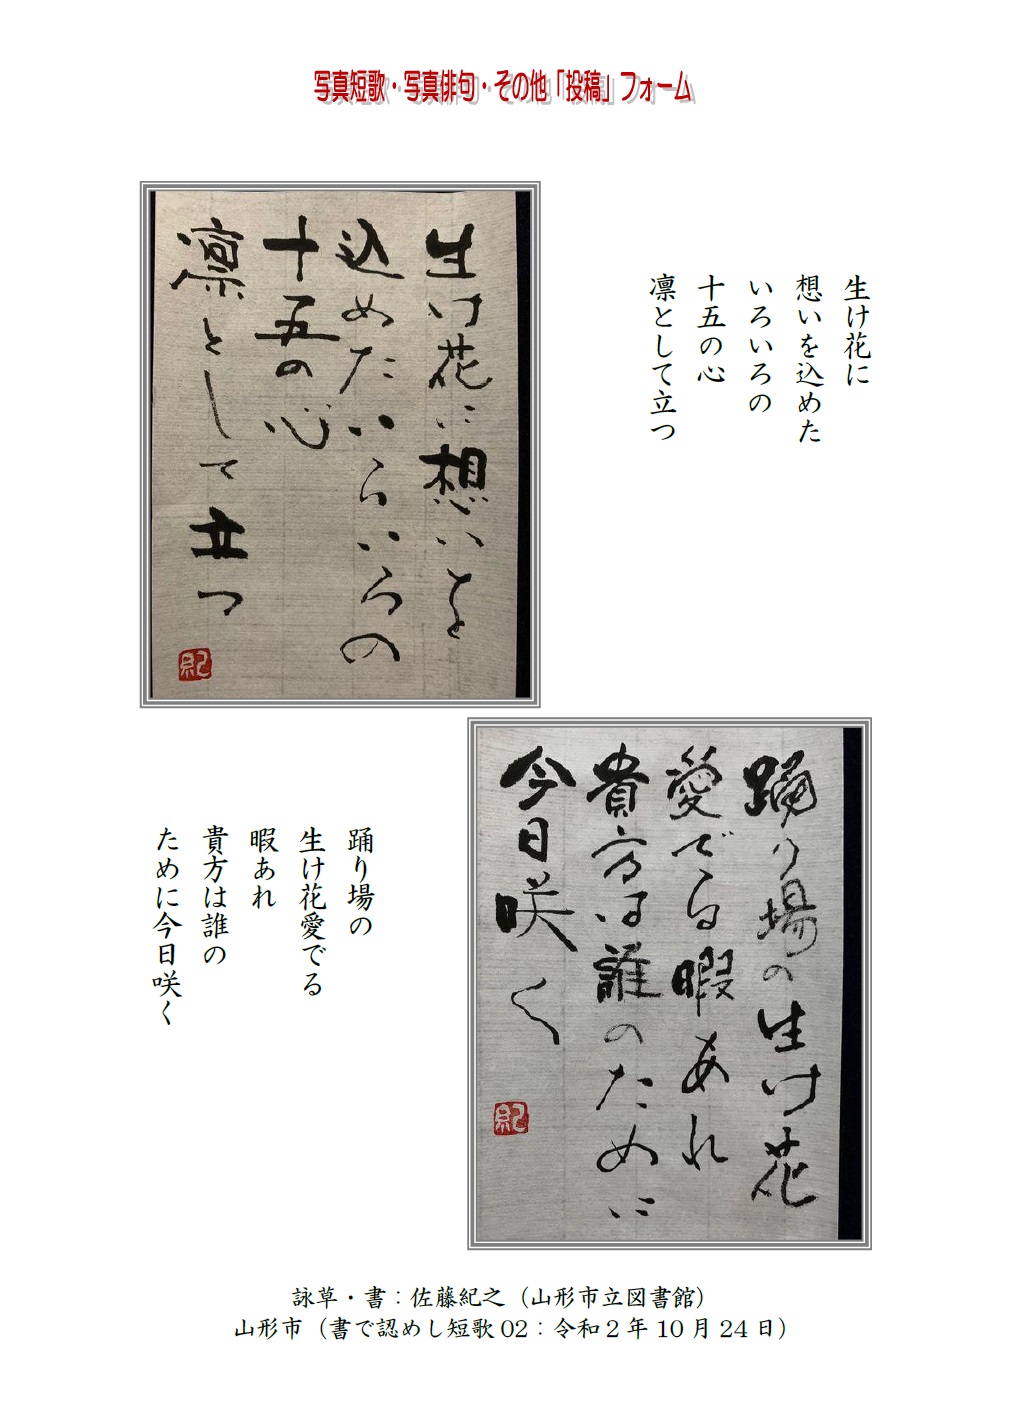 写真短歌・写真俳句・その他「投稿」フォーム
生け花に
想いを込めた
いろいろの
十五の心
凛として立つ
生け花に想いを
込めたいろいろの
十五の心
凛として立つ
紀
踊り場の生け花
愛でる暇あれ
貴方は誰のために
今日咲く
紀
踊り場の
生け花愛でる
暇あれ
貴方は誰の
ために今日咲く
詠草・書：佐藤紀之（山形市立図書館）
山形市（書で認めし短歌02：令和2年10月24日）